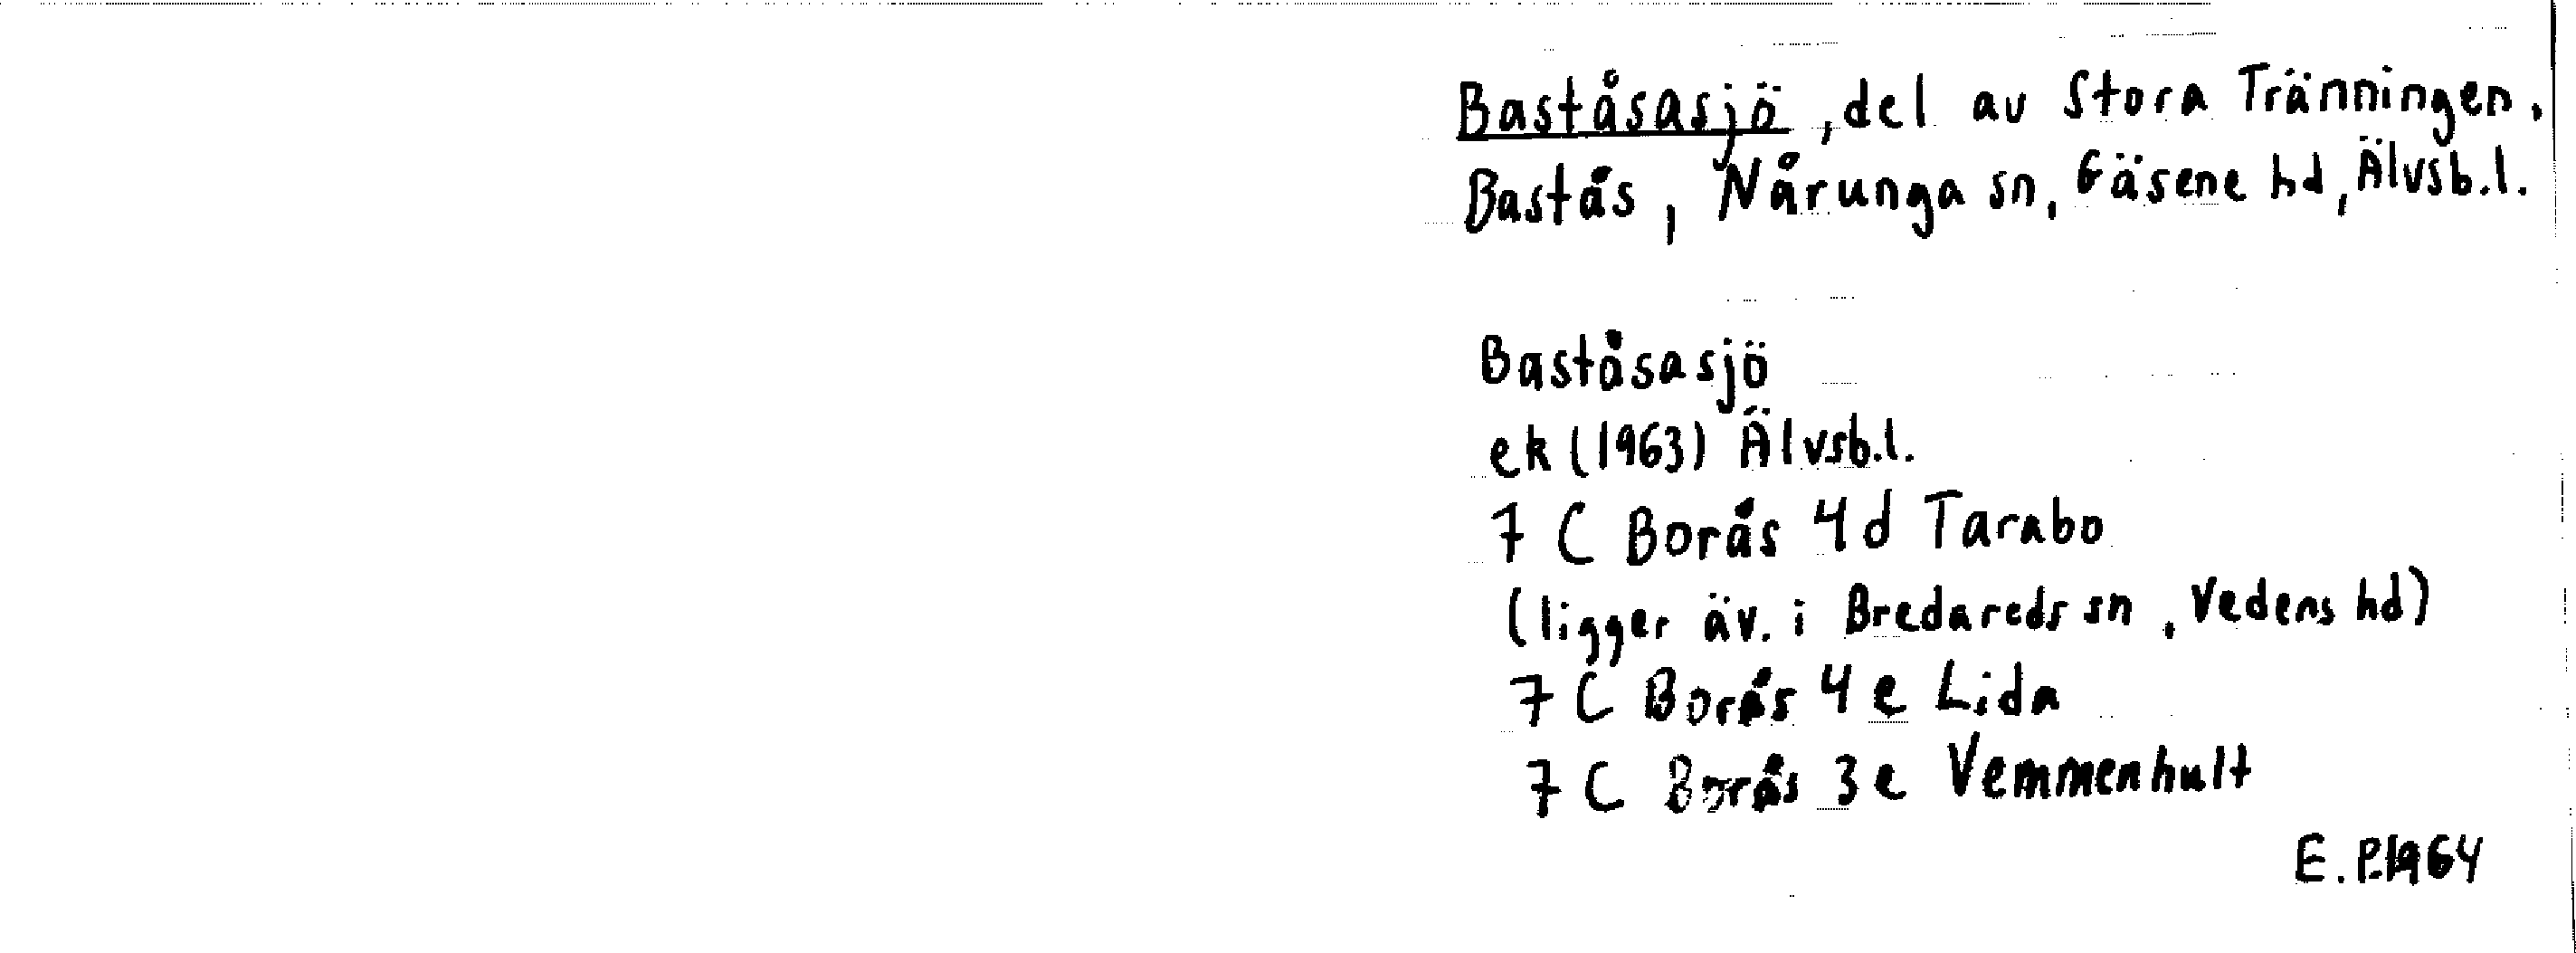 Baståsasjö, del av Stora Tränningen.
Bastås, Nårunga sn, Gäsene hd, Älvsb.l.
Baståsasjö
ek (1963) Älvsb.l.
7 C Borås 4d Tarabo
(ligger äv. i Bredareds sn, Vedens hd)
7 C Borås 4 e Lida
7 C Borås 3 e Vemmenhult
E.P.1964